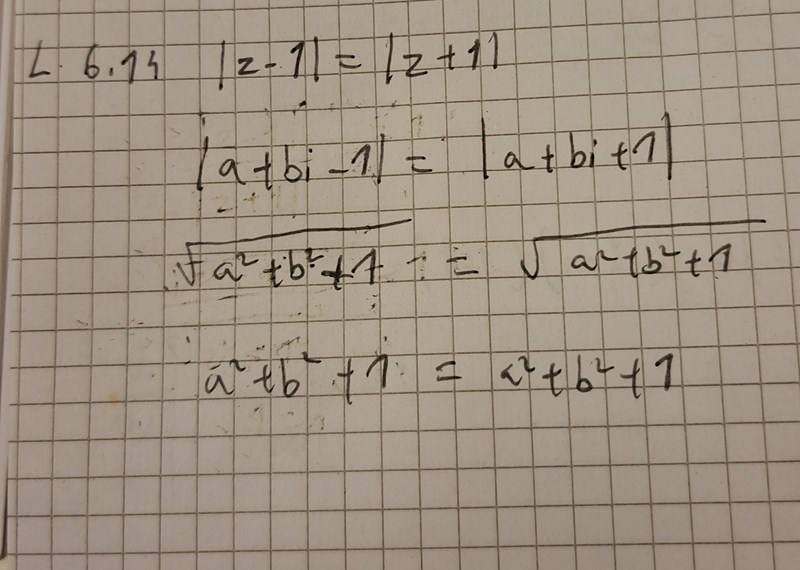 L 6.14 |z-1| = |z+1|
|a+bi-1| = |a+bi+1|
√a²+b²+1 = √a²+b²+1
a²+b²+1 = a²+b²+1